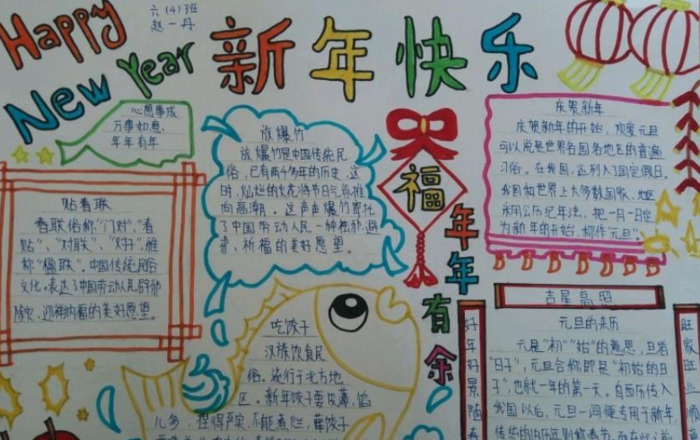 Happy
New Year
六(4)班
赵一丹
新年快乐
心想事成
万事如意
年年有年
贴春联
春联俗称"门对"、"春
贴"、"对联"、"对子",雅
称"楹联"。中国传统民俗
文化。表达了中国劳动人民辟邪
除灾、迎祥纳福的美好愿望。
放爆竹
放爆竹是中国传统民
俗,已有两千多年的历史,这
时,灿烂的火花将节日气氛推
向高潮。这声声爆竹寄托
了中国劳动人民一种
祈福的美好愿望。
福
年年有余
庆贺新年
庆贺新年的开始,欢度元旦
可以说是世界各国各地区的普遍
习俗。在我国,
我国和世界上大多数国家、地区
采用公历纪年法,把一月一日定
为新年的开始,称作元旦。
吃饺子
汉族饮食民
俗。流行于北方地
区。新年饺子要皮薄,馅
儿多,捏得严实,不能煮烂,
吉星高照
好年好景
旺家旺
元旦的来历
元是"初""始"的意思,旦指
"日子",元旦合称即是"初始的日
子",也就一年的第一天。自西历传入
我国以后,元旦一词便专用于新年,